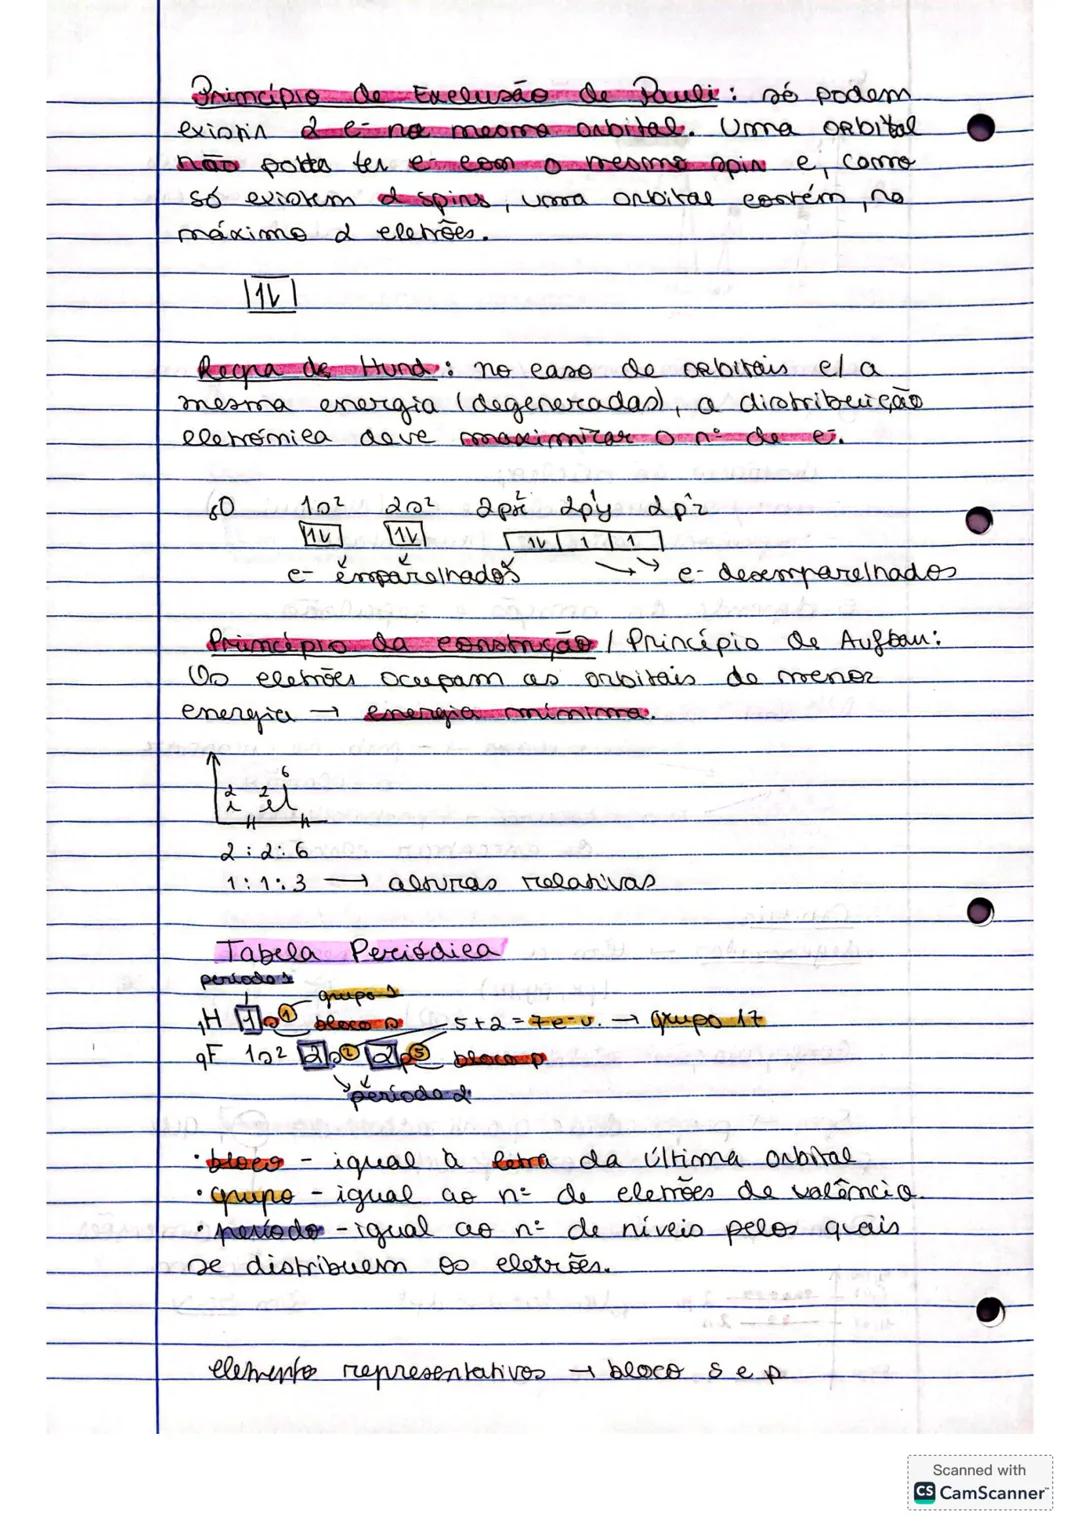 Princípio de Exclusão de Pauli: só podem
existir 2 e- na mesma orbital. Uma orbital
não poda ter e- com o mesmo spin e, como
só existem 2 spins, uma orbital contém, no
máximo 2 eletrões.
|1↓|
Regra de Hund: no caso de orbitais c/ a
mesma energia (degeneradas), a distribuição
eletrónica deve maximizar o nº de e-.
₈O 1s² 2s² 2px² 2py¹ 2pz¹
|1↓| |1↓| |1↓|1|1|
e- emparelhados → e- desemparelhados
Princípio da construção / Princípio de Aufbau:
Os eletrões ocupam as orbitais de menor
energia → energia mínima.
6
2 2
2 : 2 : 6
1 : 1 : 3 → alturas relativas
Tabela Periódica
período 1
grupo 1
₁H 1s¹ bloco s 5+2 = 7 e- v. → grupo 17
₉F 1s² 2s² 2p⁵ bloco p
período 2
• bloco - igual à letra da última orbital
• grupo - igual ao nº de eletrões de valência.
• período - igual ao nº de níveis pelos quais
se distribuem os eletrões.
elemento representativos → bloco s e p
Scanned with
CS CamScanner